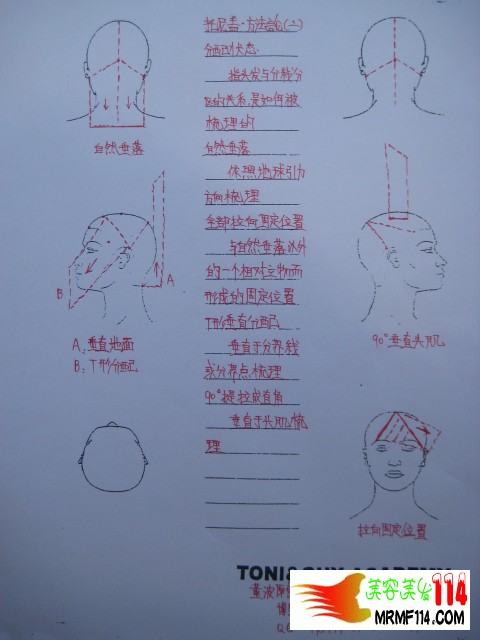 托尼盖·方法论(二)
分配状态
指头发与分教分
区的关系,是如何被
梳理的
自然垂落
依照地球引力
方向梳理
全部拉向固定位置
与自然垂落以外
的一个相对立物而
形成的固定位置
T形垂直分配
垂直于分界线
或分界点梳理
90°提拉成直角
垂直于头肌梳
理
自然垂落
A
B
A:垂直地面
B:T形分配
90°垂直头肌
拉向固定位置
TONI&GUY ACADEMY
美容美发114
MRMF114.COM